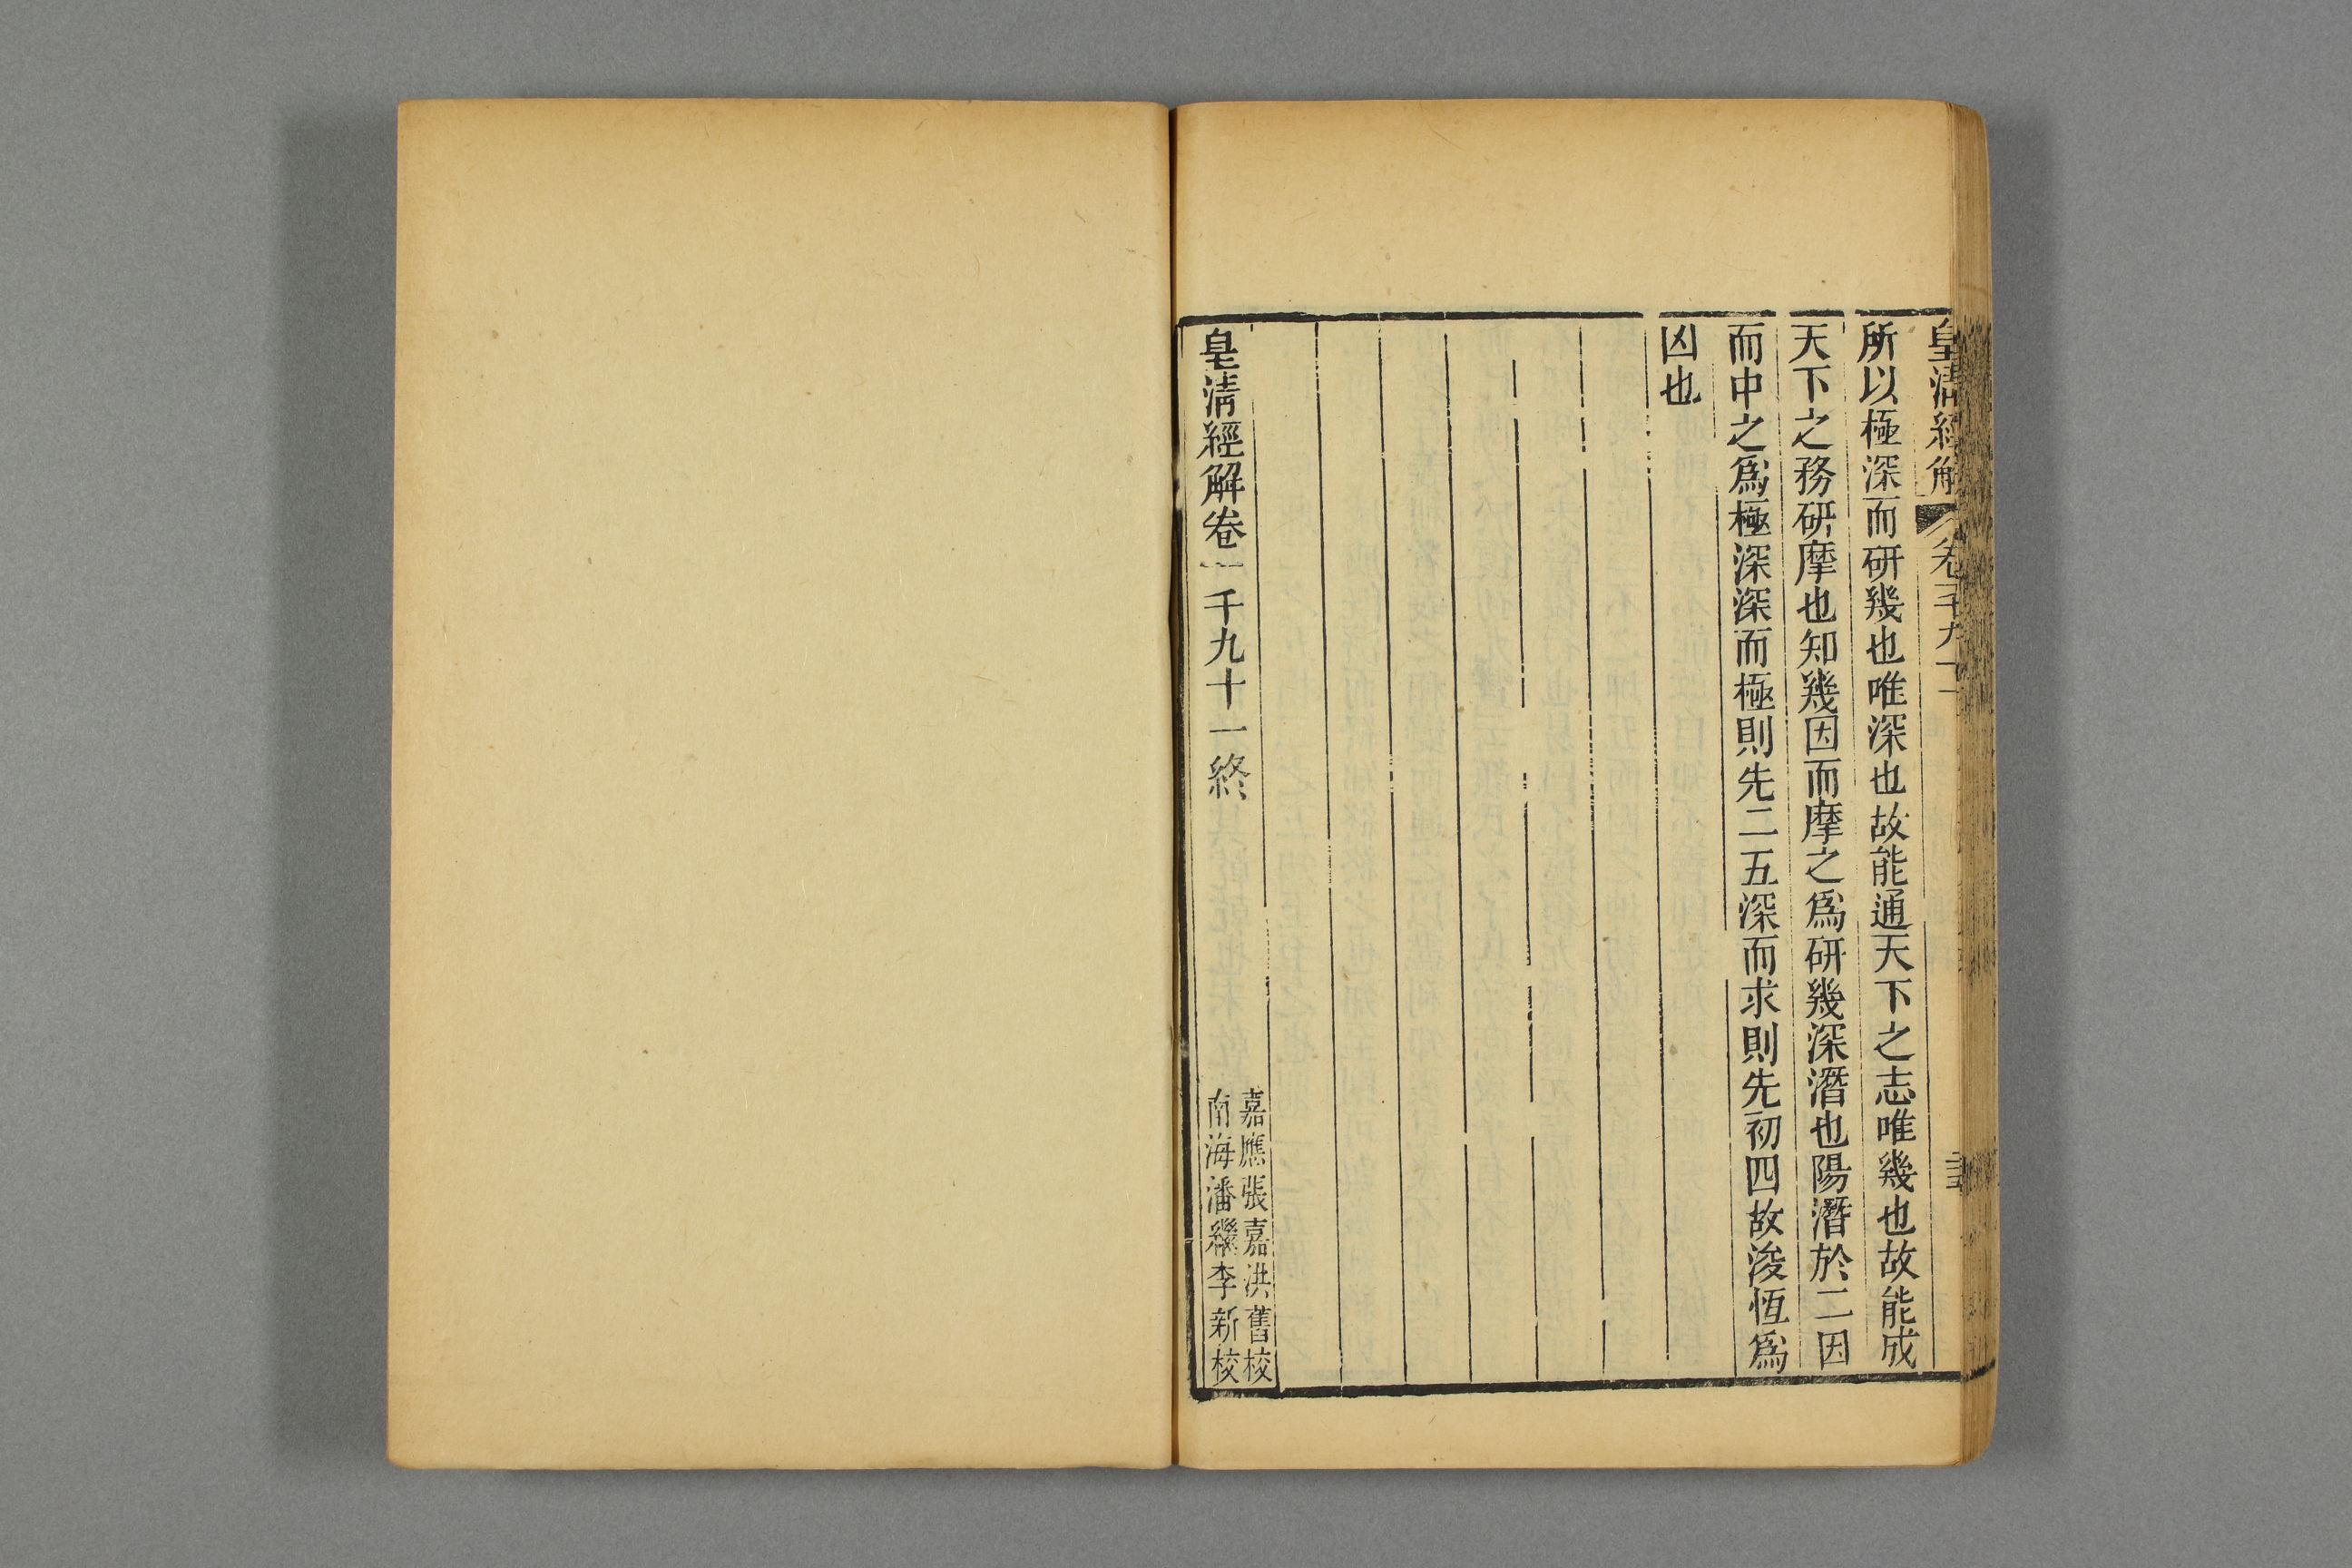 皇清經解 卷千九十一
所以極深而研幾也唯深也故能通天下之志唯幾也故能成
天下之務研摩也知幾因而摩之爲研幾深潛也陽潛於二因
而中之爲極深深而極則先二五深而求則先初四故浚恆爲
凶也
皇清經解卷一千九十一終
嘉應張嘉洪舊校
南海潘繼李新校